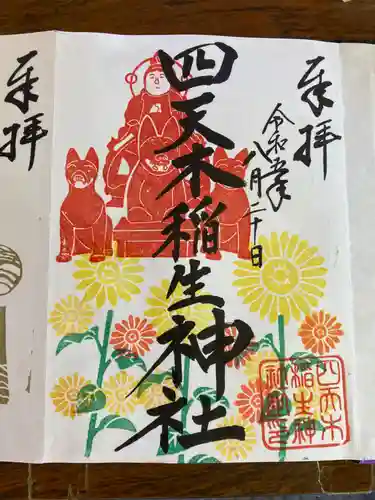 奉拝
令和五年
八月二十日
四天木稲生神社
四天木
稲生神
社之印
奉拝